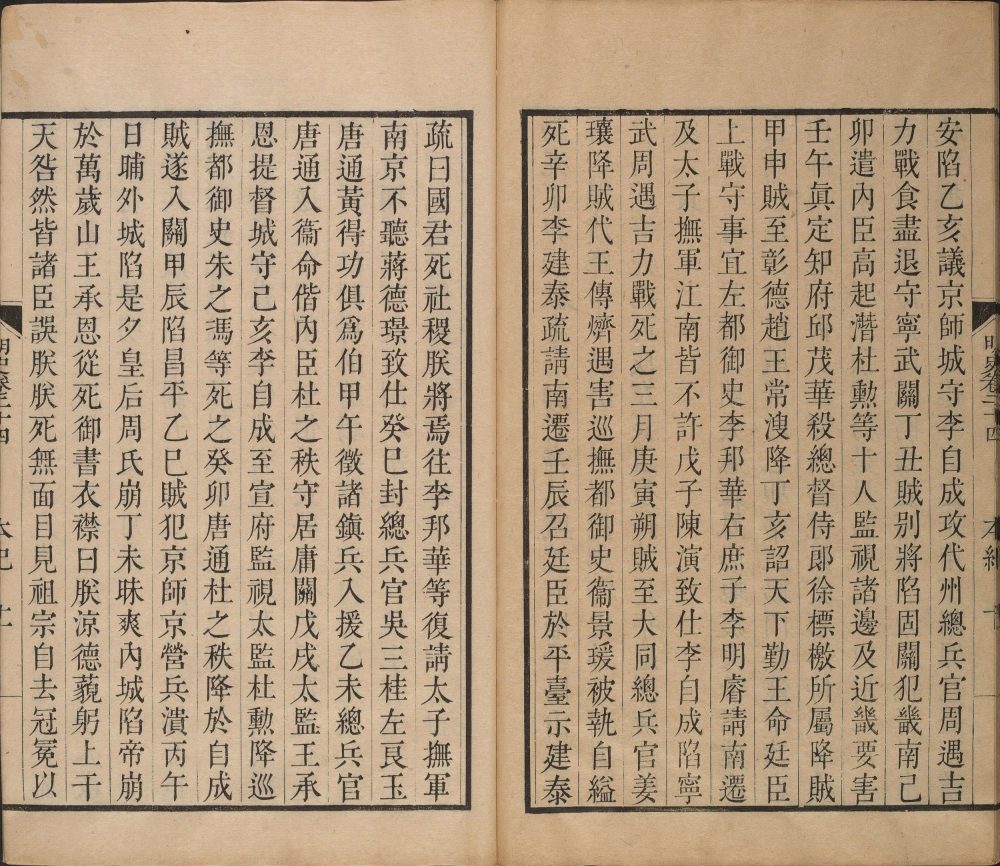 安陷乙亥議京師城守李自成攻代州總兵官周遇吉
力戰食盡退守寧武關丁丑賊别將陷固關犯畿南己
卯遣內臣高起潛杜勲等十人監視諸邊及近畿要害
壬午眞定知府邱茂華殺總督侍郎徐標檄所屬降賊
甲申賊至彰德趙王常㳛降丁亥詔天下勤王命廷臣
上戰守事宜左都御史李邦華右庶子李明睿請南遷
及太子撫軍江南皆不許戊子陳演致仕李自成陷寧
武周遇吉力戰死之三月庚寅朔賊至大同總兵官姜
瓖降賊代王傳㸄遇害巡撫都御史衞景瑗被執自縊
死辛卯李建泰疏請南遷壬辰召廷臣於平臺示建泰
明史卷二十四
本紀
疏曰國君死社稷朕將焉往李邦華等復請太子撫軍
南京不聽蔣德璟致仕癸巳封總兵官吳三桂左良玉
唐通黃得功俱爲伯甲午徵諸鎭兵入援乙未總兵官
唐通入衞命偕內臣杜之秩守居庸關戊戌太監王承
恩提督城守己亥李自成至宣府監視太監杜勲降巡
撫都御史朱之馮等死之癸卯唐通杜之秩降於自成
賊遂入關甲辰陷昌平乙巳賊犯京師京營兵潰丙午
日晡外城陷是夕皇后周氏崩丁未昧爽內城陷帝崩
於萬歲山王承恩從死御書衣襟曰朕涼德藐躬上干
天咎然皆諸臣誤朕朕死無面目見祖宗自去冠冕以
明史卷二十四
本紀